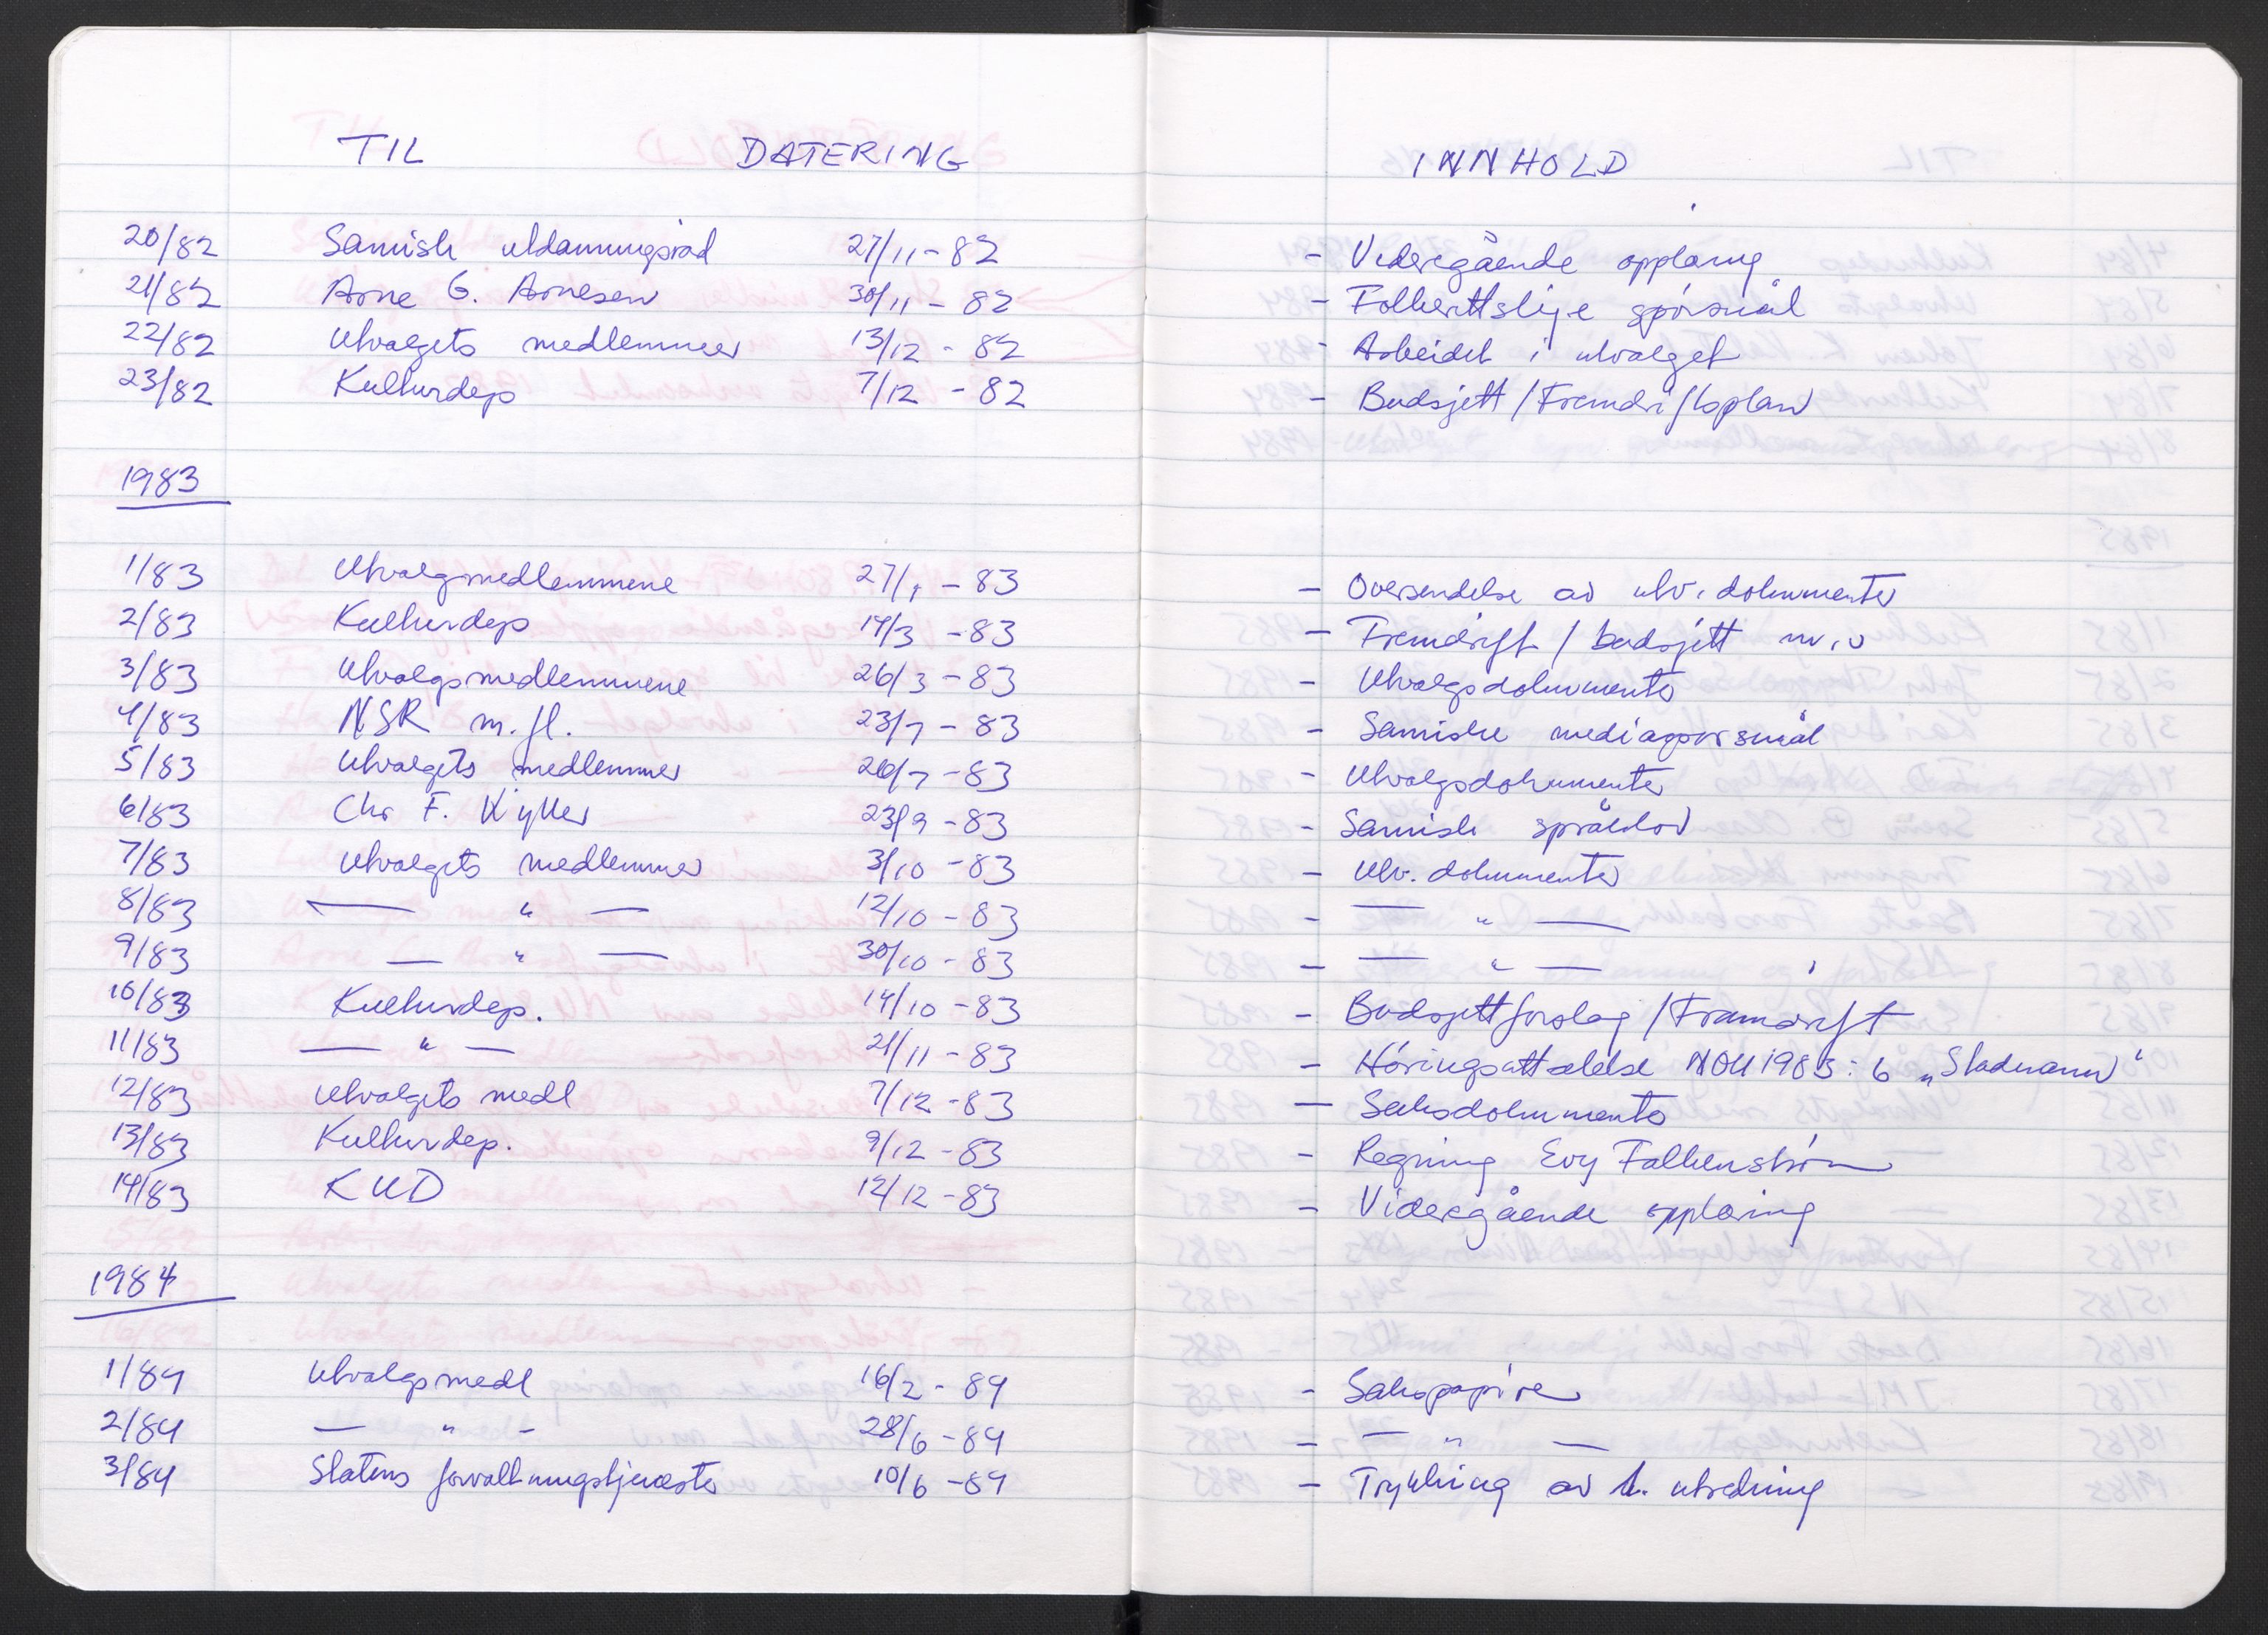 TIL DATERING INNHOLD
20/82 Samisk utdanningsråd 27/11-82 - Videregående opplæring
21/82 Arne G. Arnesen 30/11-82 - Folkerettslige spørsmål
22/82 Utvalgets medlemmer 13/12-82 - Arbeidet i utvalget
23/82 Kulturdep 7/12-82 - Budsjett/Fremdriftsplan
1983
1/83 Utvalgmedlemmene 27/1-83 - Oversendelse av utv. dokumenter
2/83 Kulturdep 14/3-83 - Fremdrift/budsjett m.v
3/83 Utvalgsmedlemmene 26/3-83 - Utvalgsdokumenter
4/83 NSR m.fl. 23/7-83 - Samiske mediaspørsmål
5/83 Utvalgets medlemmer 26/7-83 - Utvalgsdokumenter
6/83 Chr F. 23/9-83 - Samisk språklov
7/83 Utvalgets medlemmer 3/10-83 - Utv. dokumenter
8/83 — " — 12/10-83 - — " —
9/83 — " — 30/10-83 - — " —
10/83 Kulturdep. 14/10-83 - Budsjettforslag/Framdrift
11/83 — " — 21/11-83 - Høringsuttalelse NOU 1983:6 „Stadnamn"
12/83 Utvalgets medl 7/12-83 - Saksdokumenter
13/83 Kulturdep. 9/12-83 - Regning Evy Falkenstrøm
14/83 KUD 12/12-83 - Videregående opplæring
1984
1/84 Utvalgsmedl 16/2-84 - Sakspapirer
2/84 — " - 28/6-84 - — " —
3/84 Statens forvaltningstjeneste 10/6-84 - Trykking av 1. utredning